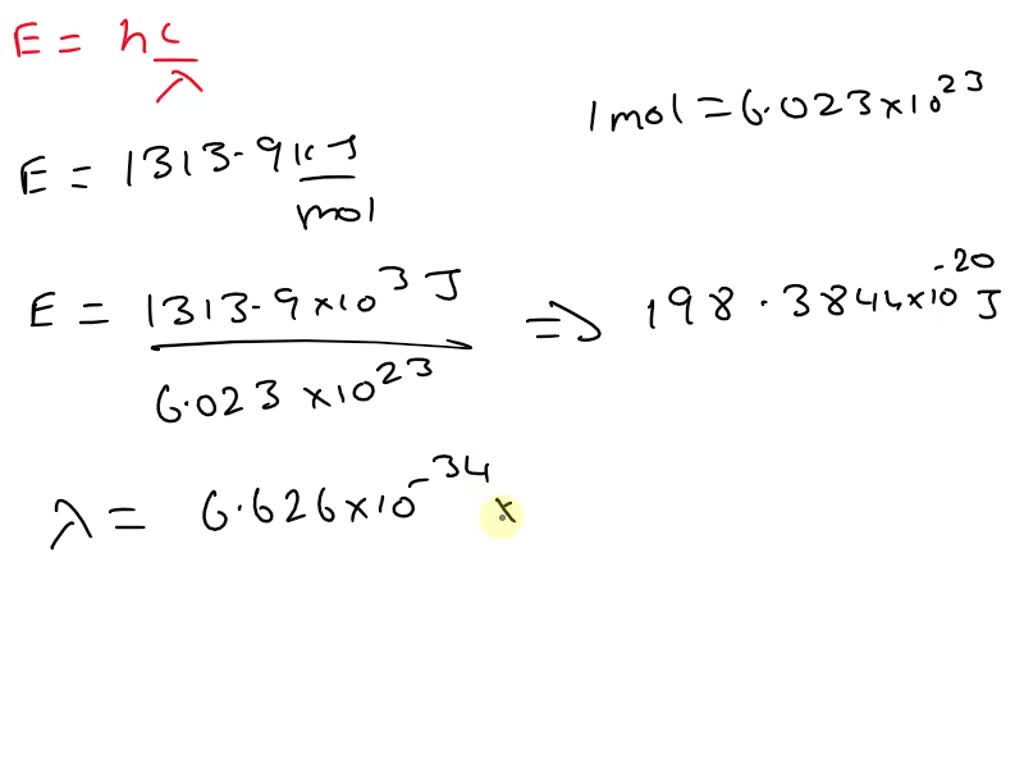 E = hc/λ
1 mol = 6.023×10²³
E = 1313.9 kJ/mol
E = 1313.9×10³ J / 6.023×10²³ ⇒ 198.3844×10⁻²⁰ J
λ = 6.626×10⁻³⁴ ×